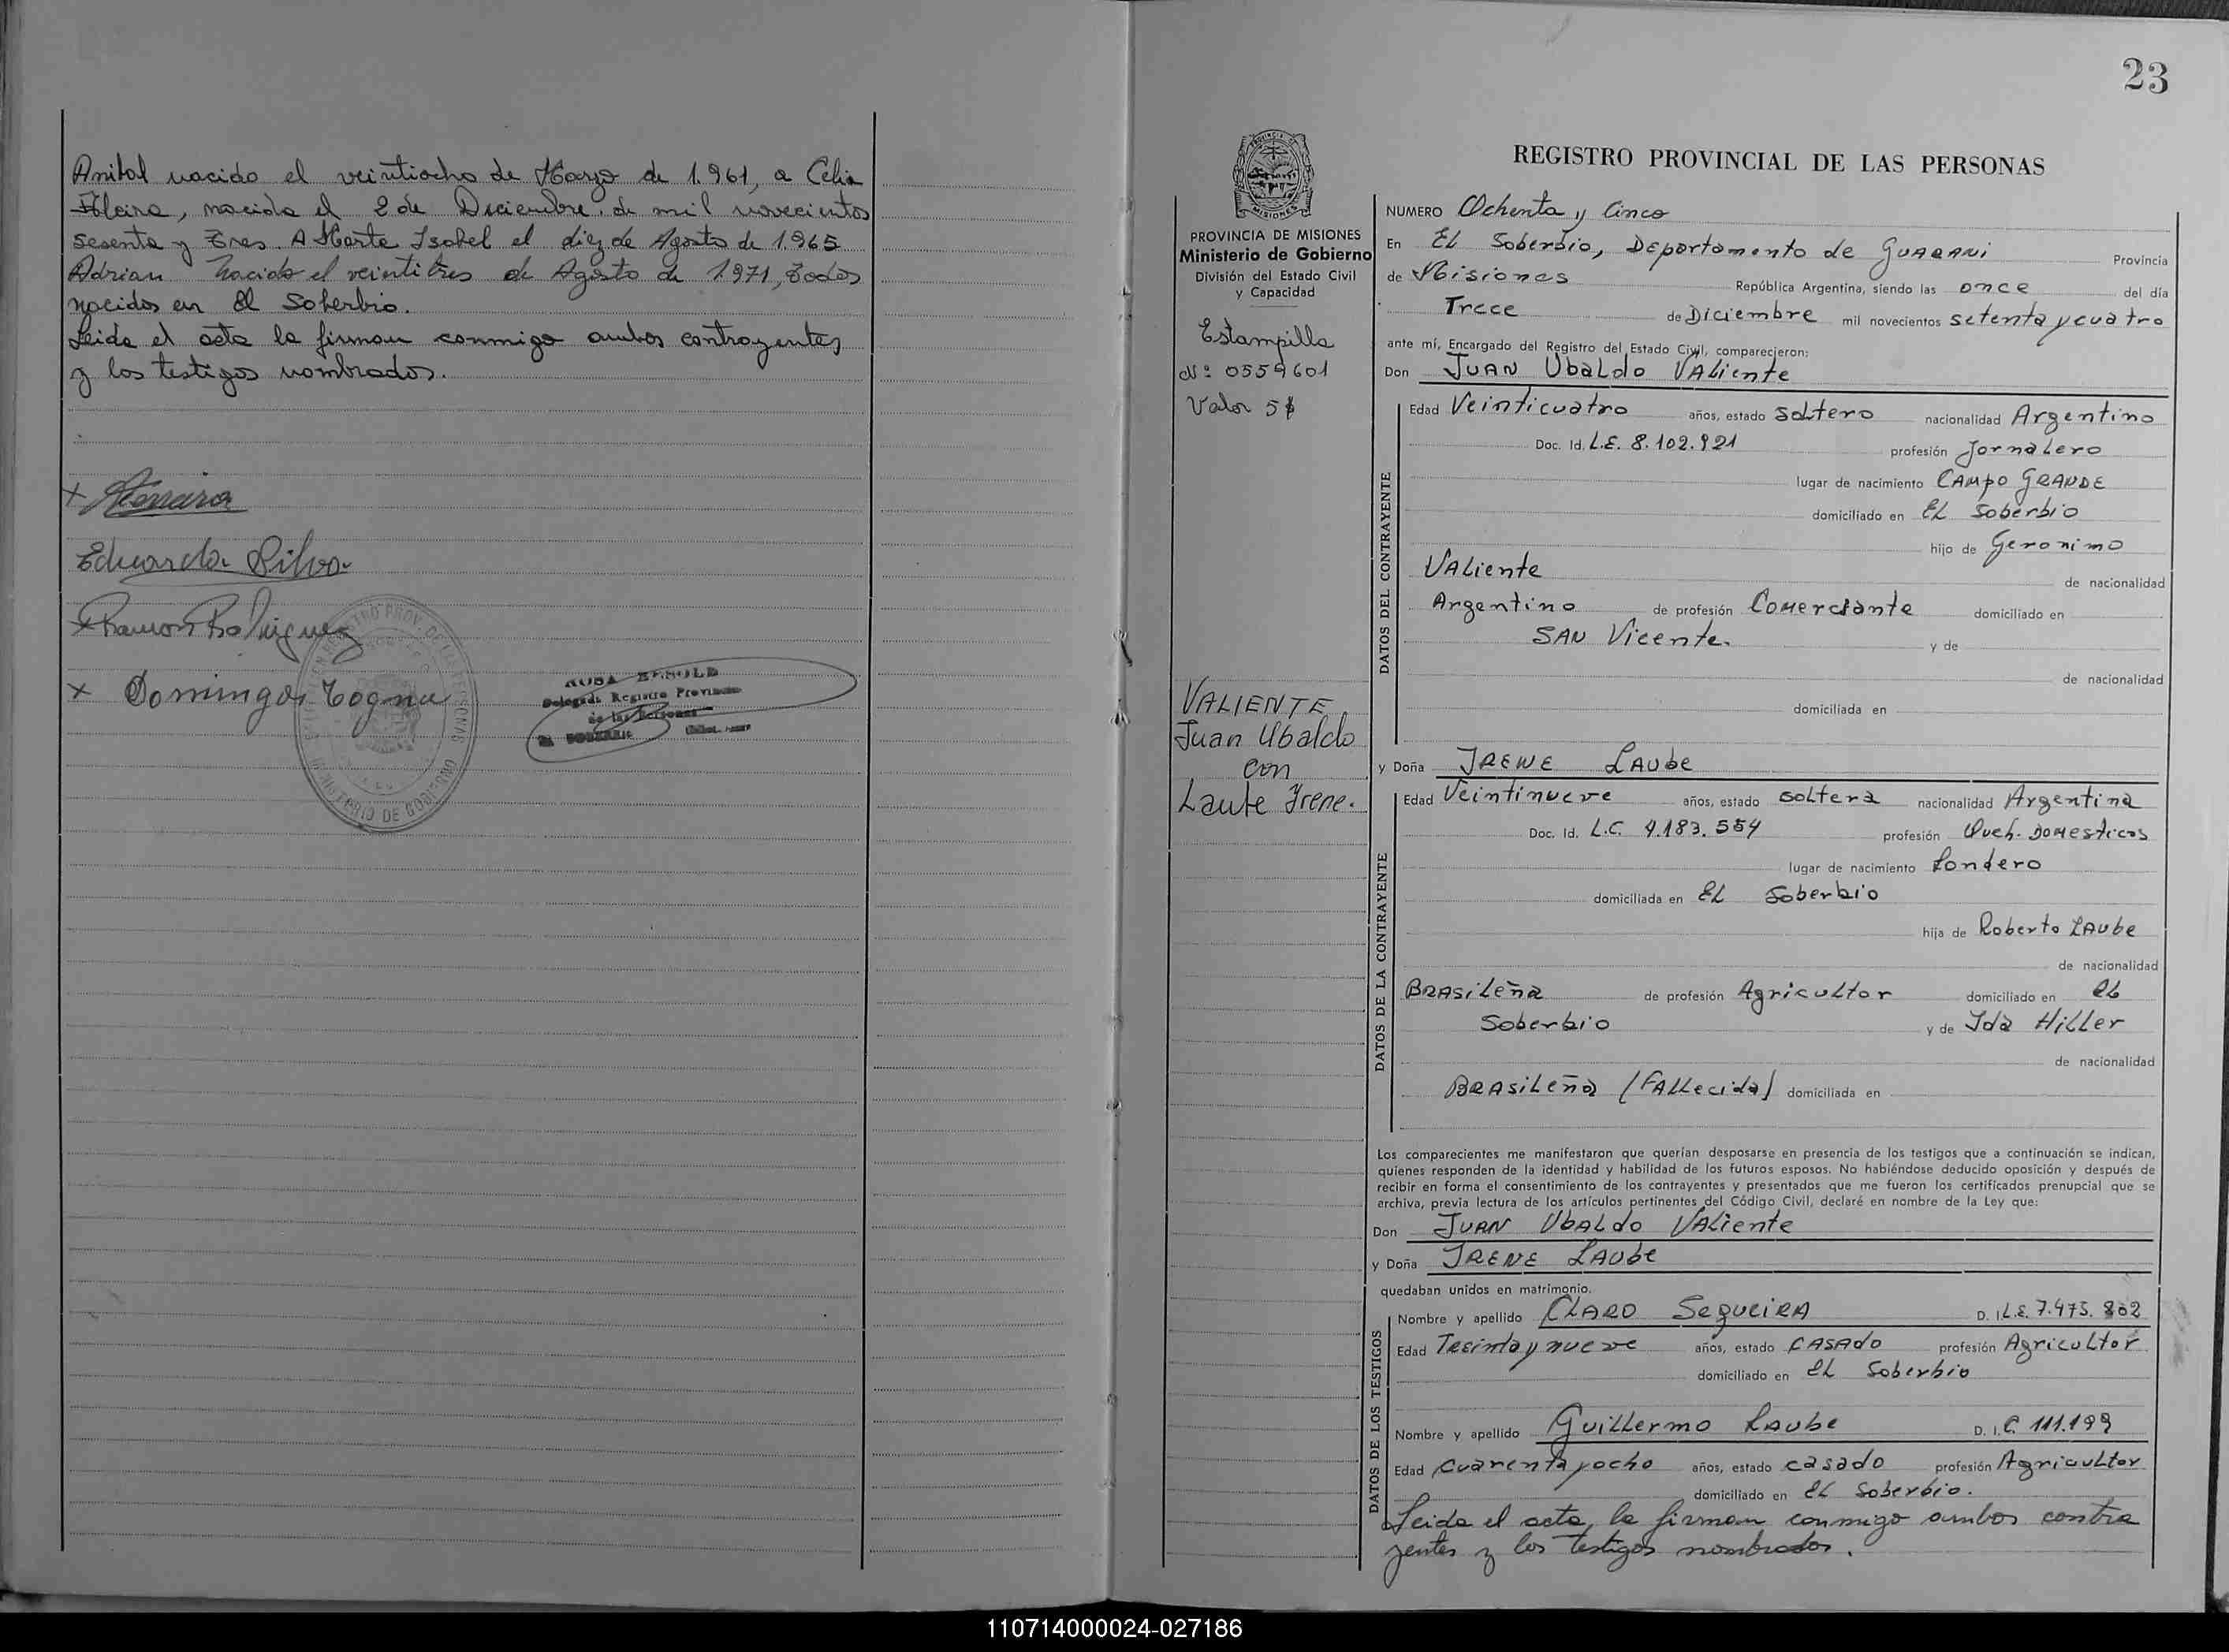 Anibal nacido el veintiocho de Marzo de 1.961, a Celia
nacida el 2 de Diciembre de mil novecientos
sesenta y Tres. A Marta Isabel el diez de Agosto de 1.965
Adrian nacido el veintitres de Agosto de 1.971, Todos
nacidos en El Soberbio.
Leida el acta la firman conmigo ambos contrayentes
y los testigos nombrados.
x
Eduarda Silva
Ramon Rodriguez
x Domingo
ROSA
Delegada Registro Provincial
de las Personas
EL SOBERBIO
MINISTERIO DE GOBIERNO
23
PROVINCIA DE MISIONES
Ministerio de Gobierno
División del Estado Civil
y Capacidad
Estampilla
Nº 0559601
Valor 5$
VALIENTE
Juan Ubaldo
con
Laube Irene.
REGISTRO PROVINCIAL DE LAS PERSONAS
NUMERO Ochenta y Cinco
En EL Soberbio, Departamento de GUARANI Provincia
de Misiones República Argentina, siendo las once del día
Trece de Diciembre mil novecientos setenta y cuatro
ante mí, Encargado del Registro del Estado Civil, comparecieron:
Don JUAN UbaLdo VALiente
DATOS DEL CONTRAYENTE
Edad Veinticuatro años, estado soLtero nacionalidad Argentino
Doc. Id. L.E. 8.102.921 profesión JornaLero
lugar de nacimiento CAMpo GRANDE
domiciliado en EL Soberbio
hijo de Geronimo
VALiente de nacionalidad
Argentino de profesión Comerciante domiciliado en
SAN Vicente. y de
de nacionalidad
domiciliada en
y Doña IRENE LAUbe
DATOS DE LA CONTRAYENTE
Edad Veintinueve años, estado soLtera nacionalidad Argentina
Doc. Id. L.C. 4.183.554 profesión Queh. Domesticos
lugar de nacimiento
domiciliada en EL Soberbio
hija de Roberto LAUbe
de nacionalidad
BRASiLeña de profesión AgricuLtor domiciliado en EL
Soberbio y de Ida HiLLer
de nacionalidad
BRASiLeña (FALLecida) domiciliada en
Los comparecientes me manifestaron que querían desposarse en presencia de los testigos que a continuación se indican,
quienes responden de la identidad y habilidad de los futuros esposos. No habiéndose deducido oposición y después de
recibir en forma el consentimiento de los contrayentes y presentados que me fueron los certificados prenupcial que se
archiva, previa lectura de los artículos pertinentes del Código Civil, declaré en nombre de la Ley que:
Don JUAN UbALdo VALiente
y Doña IRENE LAUbe
quedaban unidos en matrimonio.
DATOS DE LOS TESTIGOS
Nombre y apellido CLARO SeqUeiRA D. I. L.E. 7.475.802
Edad Treinta y nueve años, estado CASAdo profesión AgricuLtor
domiciliado en EL Soberbio
Nombre y apellido GuiLLermo LAUbe D. I. C. 111.199
Edad cuarenta y ocho años, estado casado profesión AgricuLtor
domiciliado en EL Soberbio.
Leida el acta, la firman conmigo ambos contra
yentes y los testigos nombrados.
110714000024-027186